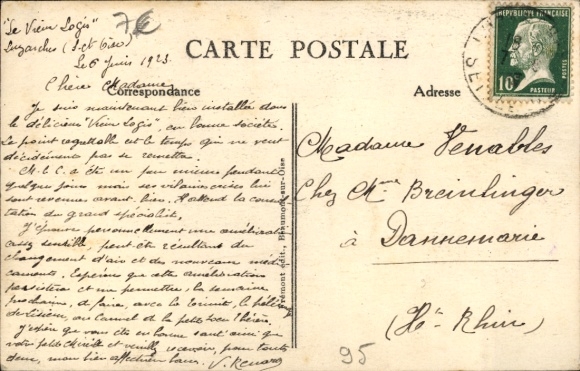 "Le Vieux Logis"
Luzarches (S-et-Oise)
Le 6 Juin 1923
7€
CARTE POSTALE
Chère Madame,
Correspondance
Adresse
Je suis maintenant bien installée dans
le délicieux "Vieux Logis", en bonne société.
Le point regrettable est le temps qui ne veut
décidément pas se remettre.
M. L. C. a été un peu mieux pendant
quelques jours mais ses vilaines crises lui
sont revenues avant-hier. Il attend la consul-
tation du grand spécialiste.
J'éprouve personnellement une amélioration
assez sensible, peut être résultant du
changement d'air et des nouveaux médi-
caments. Espérons que cette amélioration
persistera et me permettra, la semaine
prochaine, de faire, avec le
de Lisieux, au Carmel de la petite
J'espère que vous êtes en bonne santé ainsi que
votre petite et veuillez recevoir, pour toutes
deux, mon bien affectueux
V. Renard
Frémont édit., Beaumont-sur-Oise
REPUBLIQUE FRANÇAISE
10c
PASTEUR
POSTES
Madame Venables
Chez Mme Breinlinger
à Dannemarie
(Ht-Rhin)
95